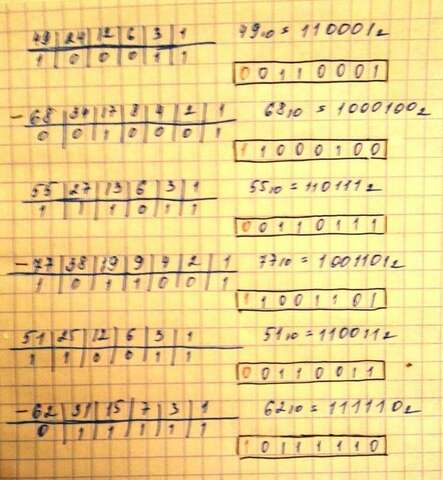 49 24 12 6 3 1 49₁₀ = 110001₂
1 0 0 0 1 1
0 0 1 1 0 0 0 1
- 68 34 17 8 4 2 1 68₁₀ = 1000100₂
0 0 1 0 0 0 1
1 1 0 0 0 1 0 0
55 27 13 6 3 1 55₁₀ = 110111₂
1 1 1 0 1 1
0 0 1 1 0 1 1 1
- 77 38 19 9 4 2 1 77₁₀ = 1001101₂
1 0 1 1 0 0 1
1 1 0 0 1 1 0 1
51 25 12 6 3 1 51₁₀ = 110011₂
1 1 0 0 1 1
0 0 1 1 0 0 1 1
- 62 31 15 7 3 1 62₁₀ = 111110₂
0 1 1 1 1 1
1 0 1 1 1 1 1 0